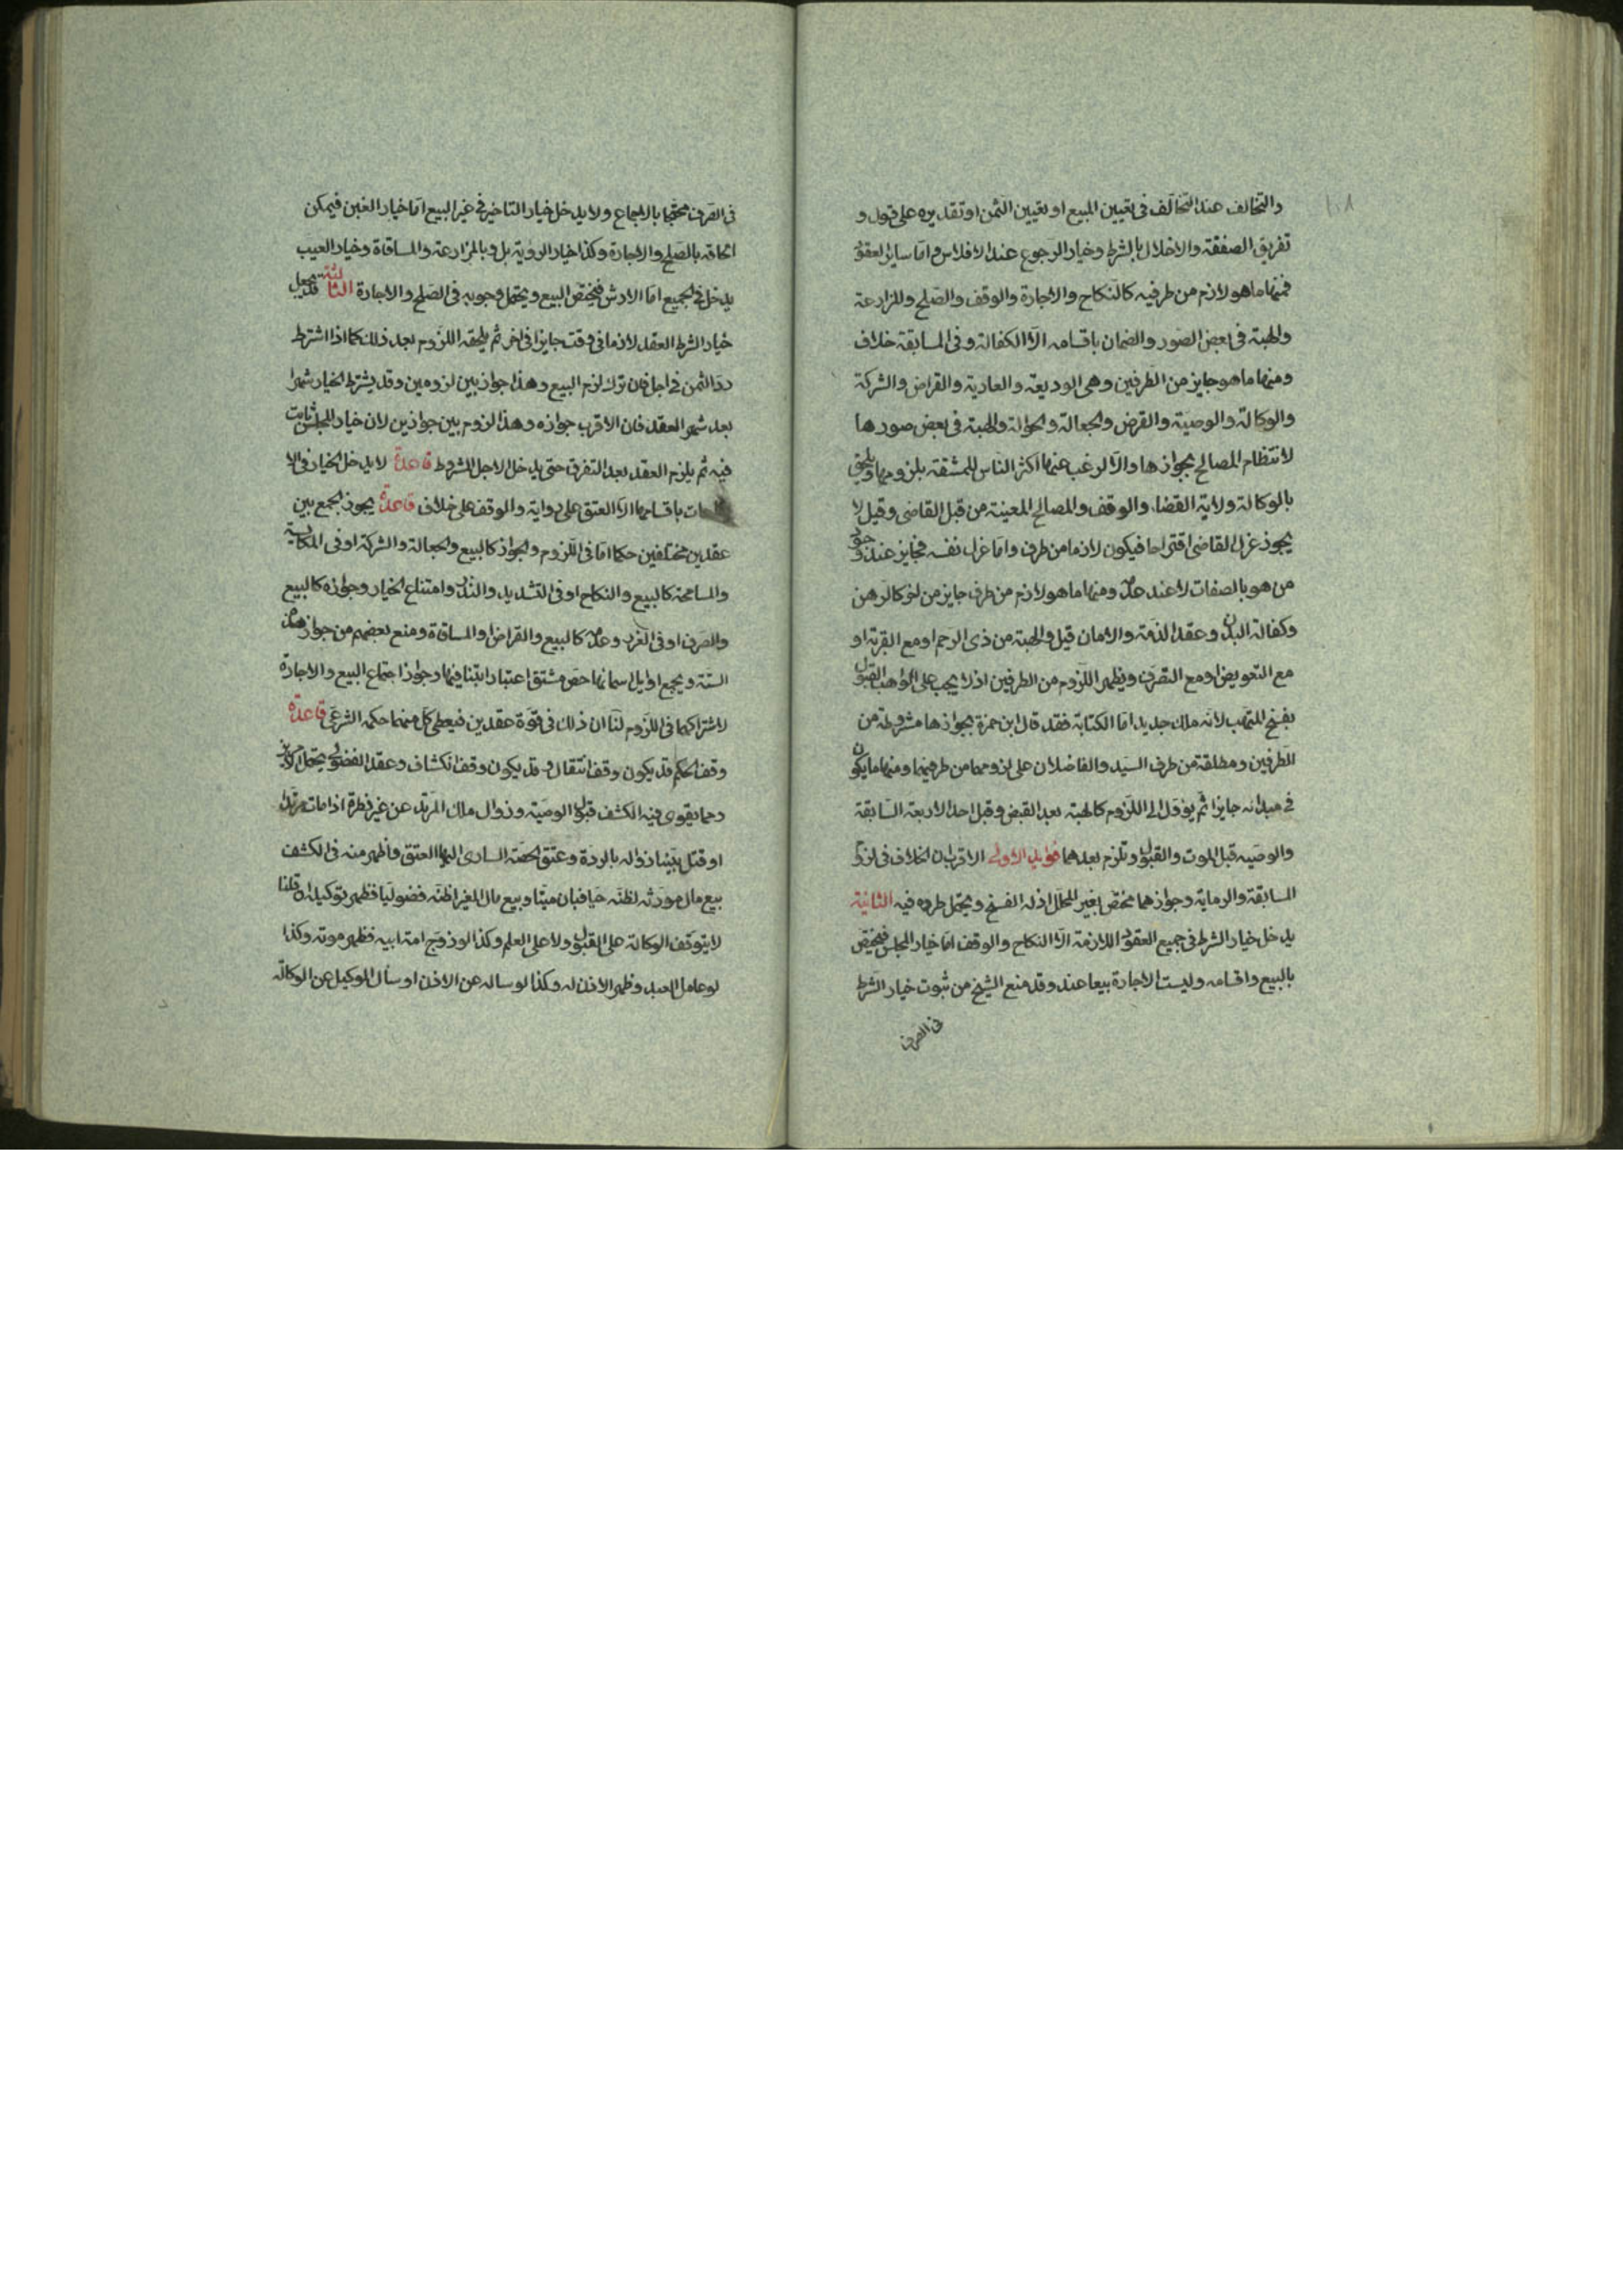 ١٠٨
والتخالف عند التخالف فى تعيين المبيع او تعيين الثمن او تقديره على قول و
تفريق الصفقة والاخلال بالشرط وخيار الرجوع عند الافلاس واما ساير العقود
فمنها ما هو لازم من طرفيه كالنكاح والاجارة والوقف والصلح والمزارعة
والهبة فى بعض الصور والضمان باقسامه الا الكفالة وفى المسابقة خلاف
ومنها ما هو جايز من الطرفين وهى الوديعة والعارية والقراض والشركة
والوكالة والوصية والقرض والجعالة والحوالة والهبة فى بعض صورها
لانتظام المصالح بجوازها والا لرغب عنها اكثر الناس للمشقة بلزومها ويلحق
بالوكالة ولاية القضاء والوقف والمصالح المعينة من قبل القاضى وقيل لا
يجوز عزل القاضى اقتراحا فيكون لازما من طرف واما عزل نفسه فجايز عند وجود
من هو بالصفات لا عند عدمه ومنها ما هو لازم من طرف جايز من اخر كالرهن
وكفالة البدن وعقد الذمة والامان قيل والهبة من ذى الرحم او مع القربة او
مع التعويض او مع التصرف ويظهر اللزوم من الطرفين اذ لا يجب على الواهب القبول
بفسخ المتهب لانه ملك جديد اما الكتابة فقد قال ابن حمزة بجوازها مشروطة من
الطرفين ومطلقة من طرف السيد والفاضلان على لزومها من طرفيهما ومنها ما يكون
فى مبدائه جايزا ثم يؤول الى اللزوم كالهبة بعد القبض وقبل احد الاربعة السابقة
والوصيه قبل الموت والقبول وتلزم بعدهما فوايد الاولى الاقرب ان الخلاف فى لزوم
المسابقة والرماية وجوازهما مختص بغير المحلل اذ له الفسخ ويحتمل طرده فيه الثانية
يدخل خيار الشرط فى جميع العقود اللازمة الا النكاح والوقف اما خيار المجلس فيختص
بالبيع واقسامه وليست الاجارة بيعا عندنا وقد منع الشيخ من ثبوت خيار الشرط
فى الصرف
فى الصرف محتجا بالاجماع ولا يدخل خيار التاخير فى غير البيع اما خيار الغبن فيمكن
الحاقه بالصلح والاجارة وكذا خيار الرؤية بل وبالمزارعة والمساقاة وخيار العيب
يدخل فى الجميع اما الارش فيختص البيع ويحتمل وجوبه فى الصلح والاجارة الثالثة قد يجعل
خيار الشرط العقد لازما فى وقت جايزا فى اخر ثم يلحقه اللزوم بعد ذلك كما اذا اشترط
رد الثمن فى اجل فان ترك لزم البيع وهذا جواز بين لزومين وقد يشترط الخيار شهرا
بعد شهر العقد فان الاقرب جوازه وهذا لزوم بين جوازين لان خيار المجلس ثابت
فيه ثم يلزم العقد بعد التفرق حتى يدخل الاجل المشروط قاعدة لا يدخل الخيار فى الا
باقسامها الا العتق على رواية والوقف على خلاف قاعدة يجوز الجمع بين
عقدين مختلفين حكما اما فى اللزوم والجواز كالبيع والجعالة والشركة او فى المكايسة
والمسامحة كالبيع والنكاح او فى التشديد و وامتناع الخيار وجوازه كالبيع
والصرف او فى الغرر وعدمه كالبيع والقراض او المساقاة ومنع بعضهم من جواز هذه
الستة ويجمع اوايل اسمائها جص مشنق اعتبارا بتنافيها وجوز اجتماع البيع والاجارة
لاشتراكهما فى اللزوم لنا ان ذلك فى قوة عقدين فيعطى كل منهما حكمه الشرعى قاعدة
وقف الحكم قد يكون وقف انتقال وقد يكون وقف انكشاف وعقد الفضولى يحتمل الامرين
ومما يقوى فيه الكشف قبول الوصية وزوال ملك المرتد عن غير فطرة اذا مات مرتدا
او قتل يتبين زواله بالردة وعتق الحصة السارى اليها العتق واظهر منه فى الكشف
بيع مال مورثه لظنه حيا فبان ميتا وبيع مال الغير اظنه فضوليا فظهر توكيله ان قلنا
لا يتوقف الوكالة على القبول ولا على العلم وكذا لو زوج امة ابيه فظهر موته وكذا
لو عامل العبد وظهر الاذن له وكذا لو ساله عن الاذن او سأل الوكيل عن الوكالة